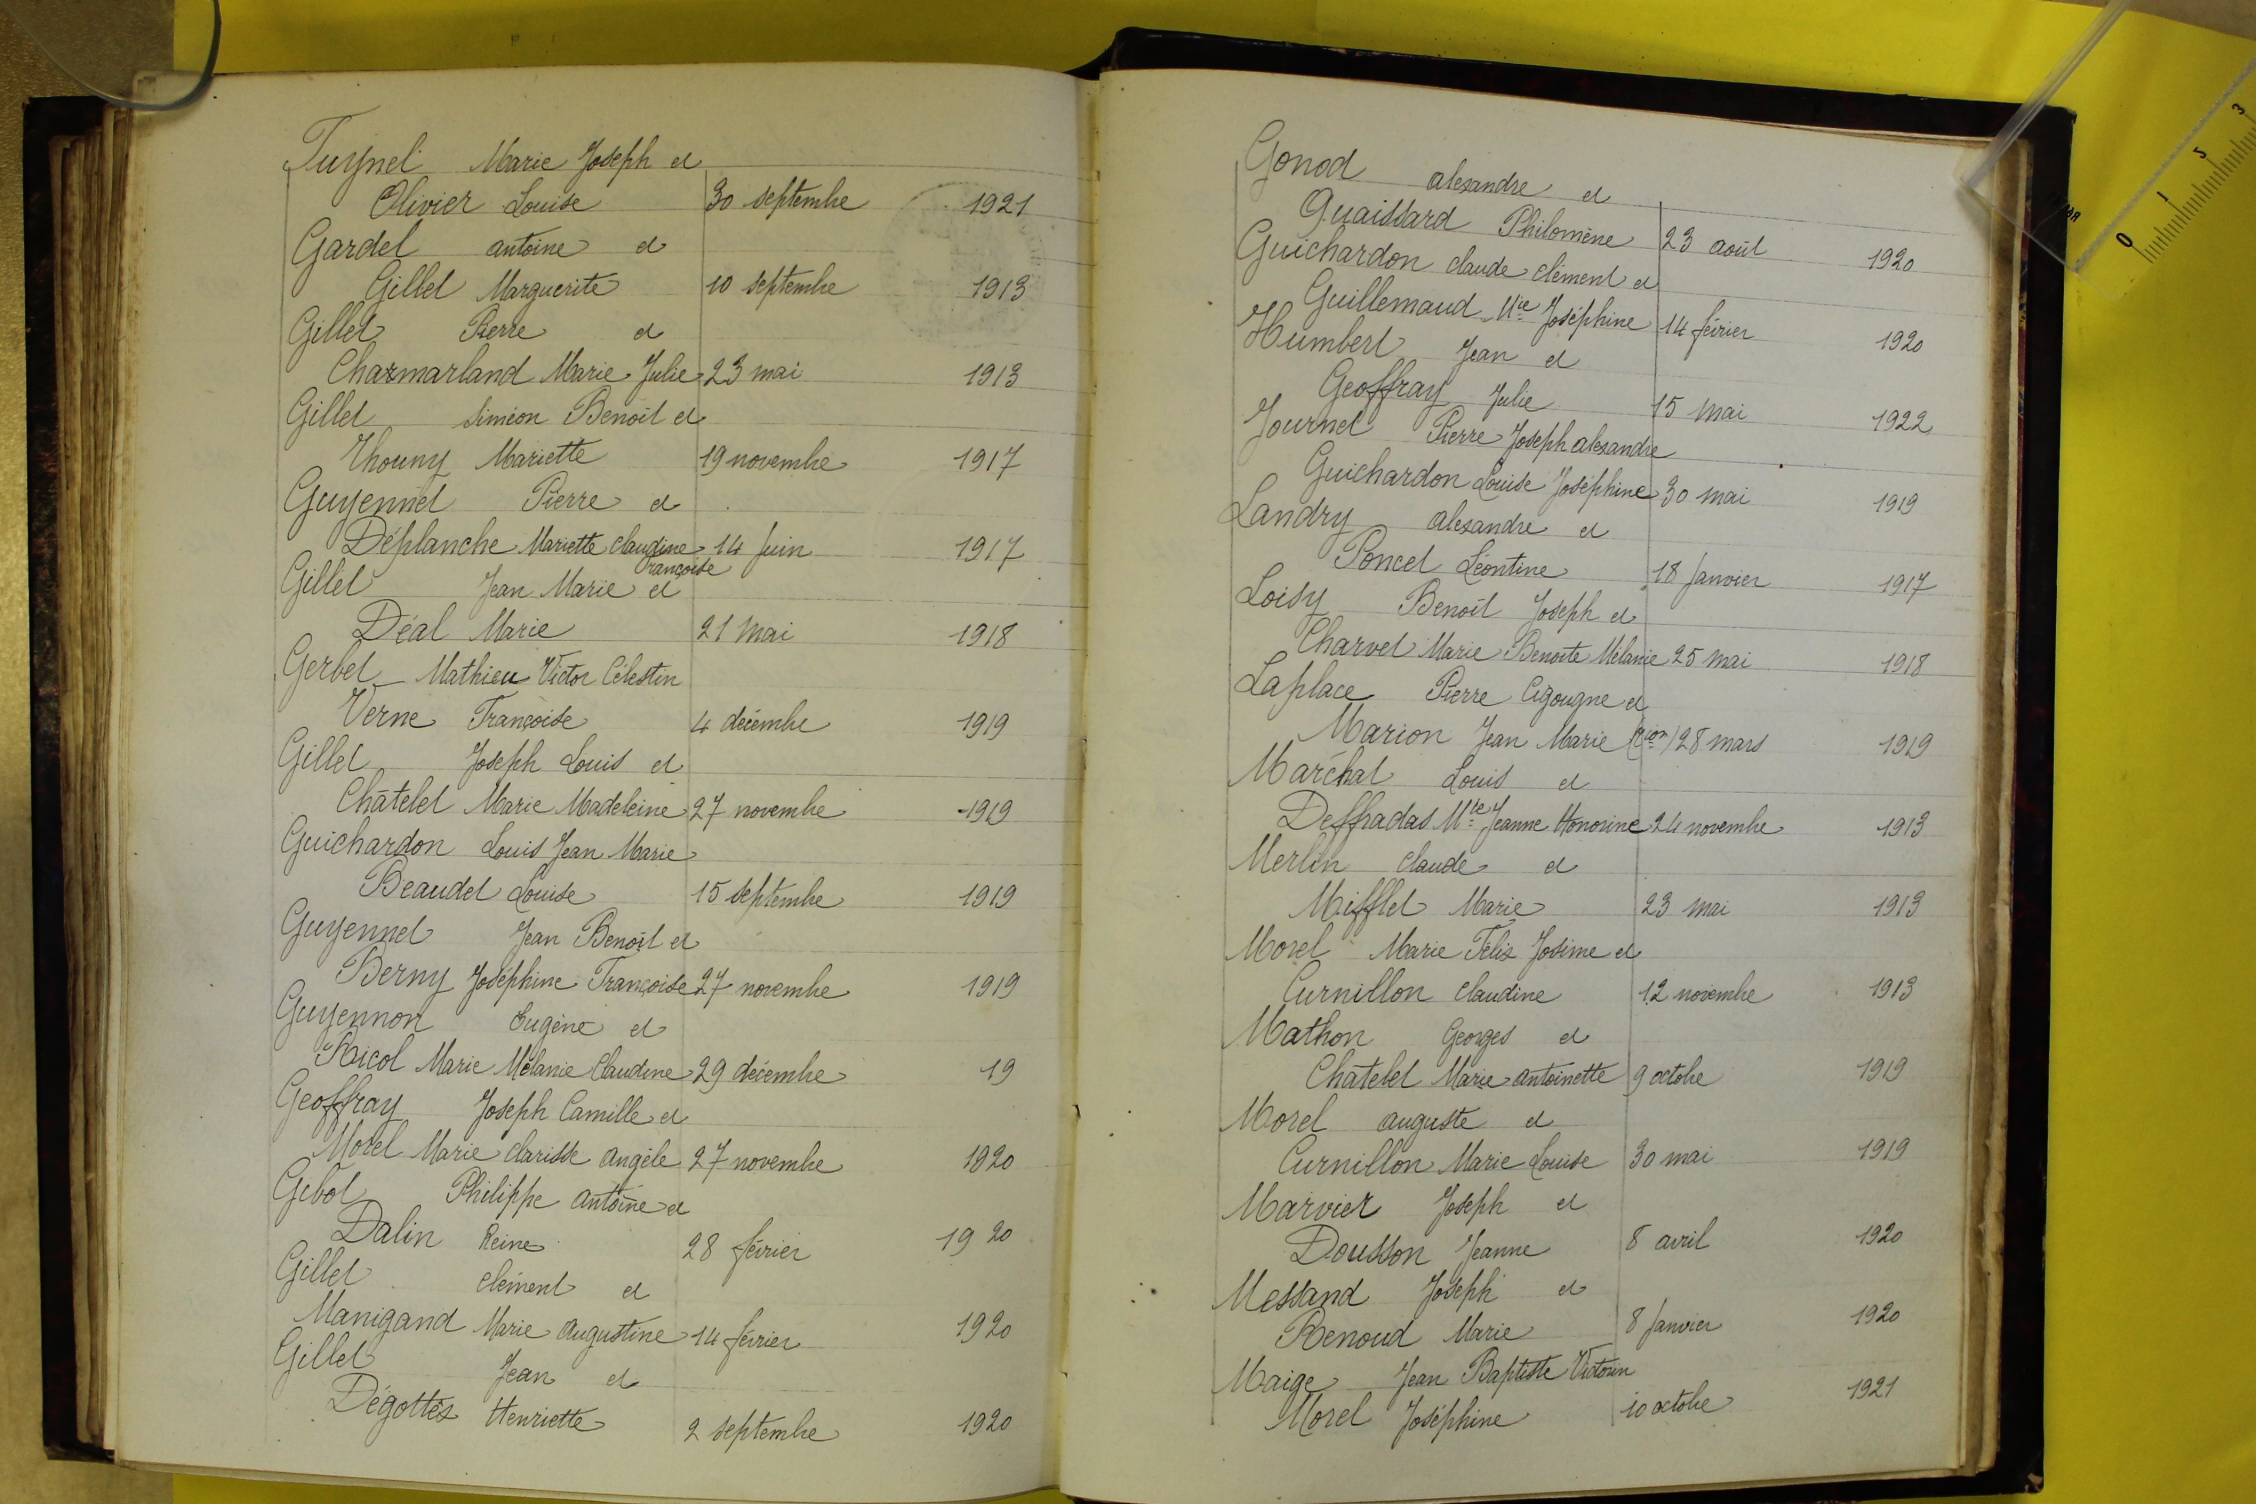 Tuynet Marie Joseph et
Olivier Louise 30 septembre 1921
Gardet antoine et
Gillet Marguerite 10 septembre 1913
Gillet Pierre et
Chazmarland Marie Julie 23 mai 1913
Gillet Siméon Benoit et
Thouny Mariette 19 novembre 1917
Guyennet Pierre et
Déplanche Mariette claudine françoise 14 Juin 1917
Gillet Jean Marie et
Déal Marie 21 Mai 1918
Gerbet Mathieu Victor Célestin
Verne Françoise 4 décembre 1919
Gillet Joseph Louis et
Châtelet Marie Madeleine 27 novembre 1919
Guichardon Louis Jean Marie
Beaudet Louise 15 septembre 1919
Guyennet Jean Benoît et
Berny Joséphine Françoise 27 novembre 1919
Guyennon Eugène et
Ricol Marie Mélanie Claudine 29 décembre 19
Geoffray Joseph Camille et
Morel Marie clarisse angèle 27 novembre 1920
Gebot Philippe antoine et
Dalin Reine 28 février 1920
Gillet clément et
Manigand Marie augustine 14 février 1920
Gillet Jean et
Dégottés Henriette 2 septembre 1920
Gonod alexandre et
Quaissard Philomène 23 août 1920
Guichardon claude clément et
Guillemaud Mie Joséphine 14 février 1920
Humbert Jean et
Geoffray Julie 15 Mai 1922
Journet Pierre Joseph alexandre
Guichardon Louise Joséphine 30 mai 1919
Landry alexandre et
Poncet Léontine 18 Janvier 1917
Loisy Benoît Joseph et
Charvet Marie Benoite Mélanie 25 mai 1918
Laplace Pierre Cigougne et
Marion Jean Marie 28 mars 1919
Maréchal Louis et
Deffradas Mie Jeanne Honorine 24 novembre 1913
Merlin claude et
Mifflet Marie 23 mai 1913
Morel Marie Félix Josime et
Curnillon claudine 12 novembre 1913
Mathon Georges et
Chatelet Marie antoinette 9 octobre 1919
Morel auguste et
Curnillon Marie Louise 30 mai 1919
Marvier Joseph et
Dousson Jeanne 8 avril 1920
Messand Joseph et
Renoud Marie 8 Janvier 1920
Maige Jean Baptiste Victorin
Morel Joséphine 10 octobre 1921
0 1 5 3